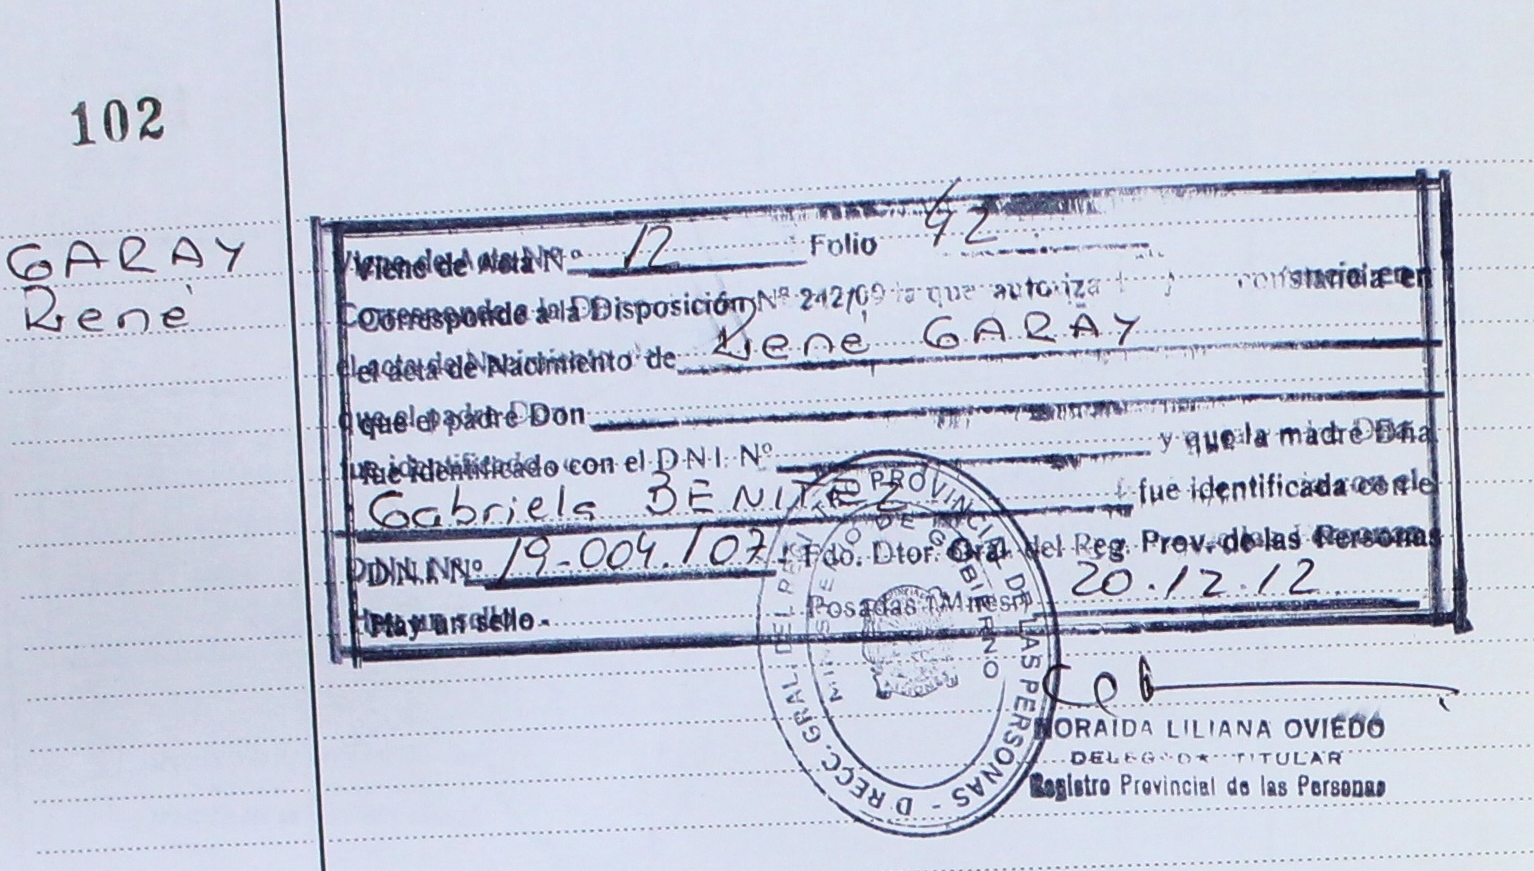 102
GARAY
René
Viene de Acta Nº 12 Folio 42
Corresponde a la Disposición Nº 242/09 la que autoriza constancia en
el acta de Nacimiento de René GARAY
que el padre Don
fue identificado con el D.N.I. Nº y que la madre Dña
Gabriela BENITEZ fue identificada con el
D.N.I. Nº 19-004.107 Fdo. Dtor. Gral del Reg. Prov. de las Personas
Hay un sello - Posadas (Mnes) 20.12.12
DIRECC. GRAL. DEL REGISTRO PROVINCIAL DE LAS PERSONAS
MINISTERIO DE GOBIERNO
MISIONES
NORAIDA LILIANA OVIEDO
DELEGADA TITULAR
Registro Provincial de las Personas